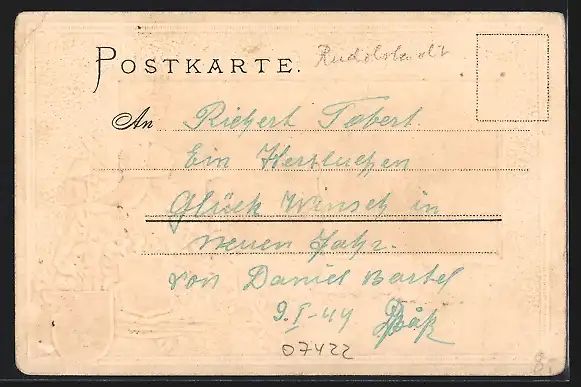 POSTKARTE.
Rudolstadt
An Richert Tobert.
Ein Hertzluchen
Glück Winsch in
neuen Jahr.
von Daniel Bartel
9.I-44
07422